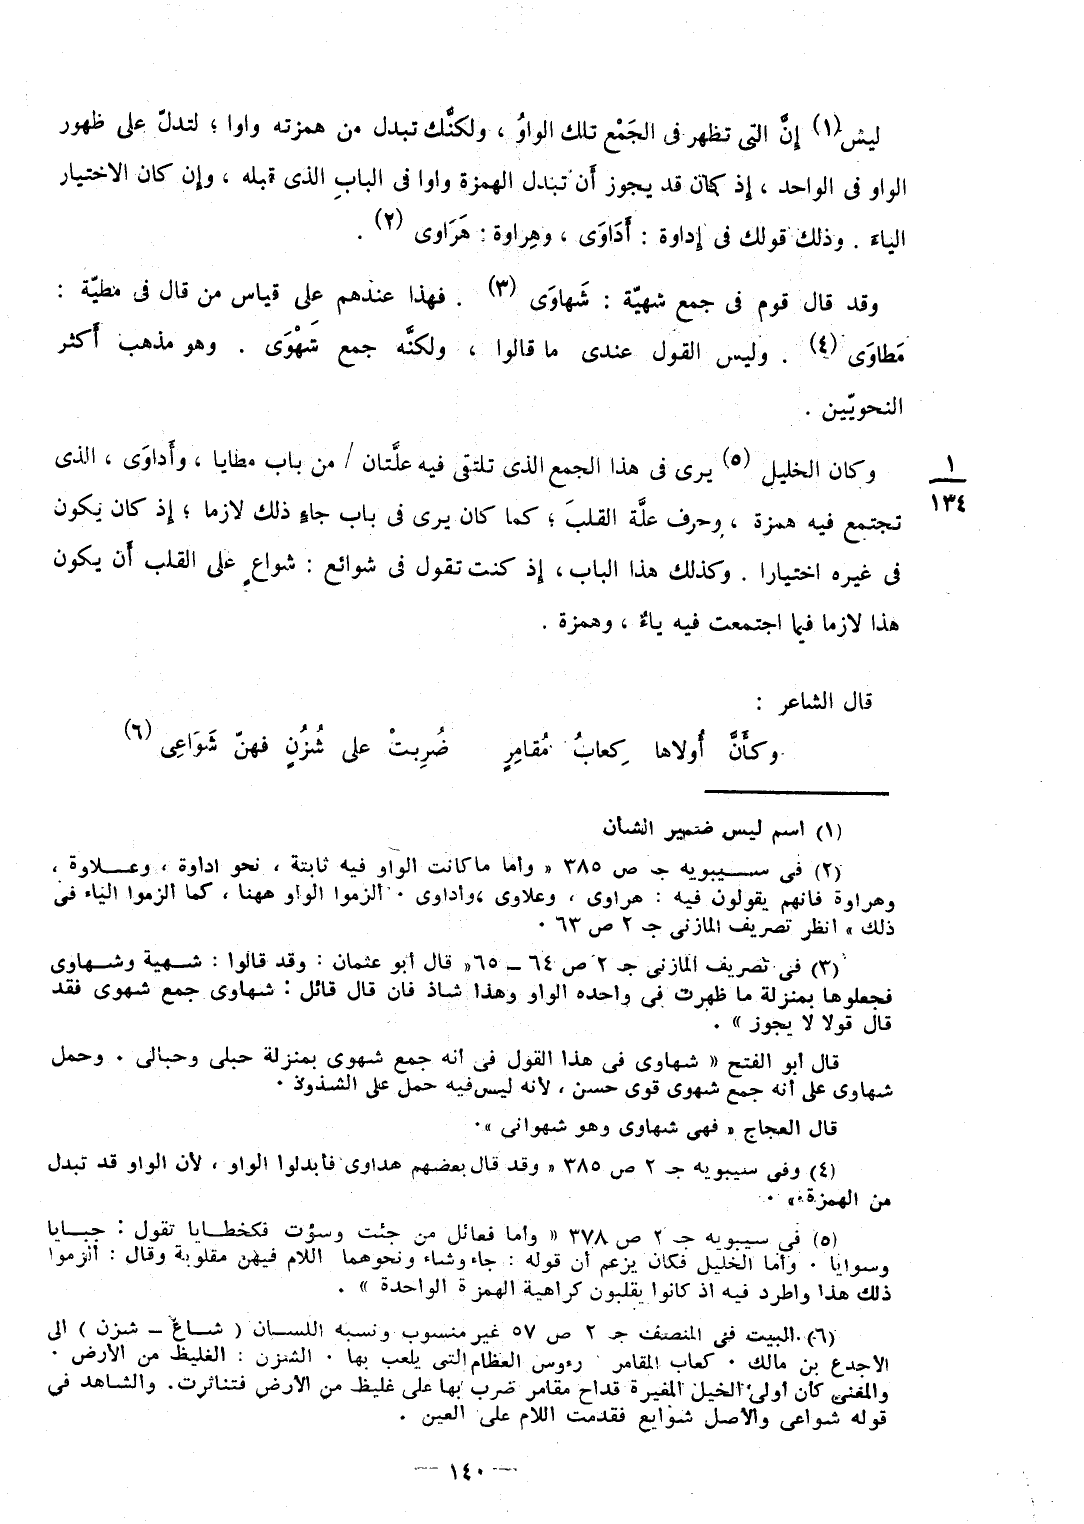 ليس(١) إنَّ التى تظهر فى الجَمْع تلك الواوُ ، ولكنَّك تبدل من همزته واوا ؛ لتدلّ على ظهور
الواو فى الواحد ، إذ كان قد يجوز أن تبدل الهمزة واوا فى البابِ الذى قبله ، وإن كان الاختيار
الياءَ . وذلك قولك فى إداوة : أَدَاوَى ، وهِراوة : هَرَاوى (٢) .
وقد قال قوم فى جمع شهيّة : شَهاوَى (٣) . فهذا عندهم على قياس من قال فى مطيّة :
مَطاوَى (٤) . وليس القول عندى ما قالوا ، ولكنَّه جمع شَهْوَى . وهو مذهب أكثر
النحويّين .
وكان الخليل (٥) يرى فى هذا الجمع الذى تلتقى فيه علَّتان / من باب مطايا ، وأَداوَى ، الذى
١
١٣٤
تجتمع فيه همزة ، وحرف علَّة القلبَ ؛ كما كان يرى فى باب جاءٍ ذلك لازما ؛ إذ كان يكون
فى غيره اختيارا . وكذلك هذا الباب ، إذ كنت تقول فى شوائع : شواعٍ على القلب أَن يكون
هذا لازما فيما اجتمعت فيه ياءٌ ، وهمزة .
قال الشاعر :
وكأَنَّ أُولاها كِعابُ مُقامِرٍ ضُرِبتْ على شُزُنٍ فهنّ شَوَاعِى (٦)
(١) اسم ليس ضمير الشأن
(٢) فى سيبويه جـ ص ٣٨٥ « وأما ماكانت الواو فيه ثابتة ، نحو اداوة ، وعلاوة ،
وهراوة فانهم يقولون فيه : هراوى ، وعلاوى ،وأداوى ٠ ألزموا الواو ههنا ، كما ألزموا الياء فى
ذلك » انظر تصريف المازنى جـ ٢ ص ٦٣ ٠
(٣) فى تصريف المازنى جـ ٢ ص ٦٤ – ٦٥« قال أبو عثمان : وقد قالوا : شهية وشهاوى
فجعلوها بمنزلة ما ظهرت فى واحده الواو وهذا شاذ فان قال قائل : شهاوى جمع شهوى فقد
قال قولا لا يجوز » .
قال أبو الفتح « شهاوى فى هذا القول فى أنه جمع شهوى بمنزلة حبلى وحبالى ٠ وحمل
شهاوى على أنه جمع شهوى قوى حسن ، لأنه ليس فيه حمل على الشذوذ ٠
قال العجاج « فهى شهاوى وهو شهوانى »٠
(٤) وفى سيبويه جـ ٢ ص ٣٨٥ « وقد قال بعضهم هداوى فأبدلوا الواو ، لأن الواو قد تبدل
من الهمزة » ٠
(٥) فى سيبويه جـ ٢ ص ٣٧٨ « وأما فعائل من جئت وسؤت فكخطايا تقول : جبايا
وسوايا ٠ وأما الخليل فكان يزعم أن قوله : جاء وشاء ونحوهما اللام فيهن مقلوبة وقال : ألزموا
ذلك هذا واطرد فيه اذ كانوا يقلبون كراهية الهمزة الواحدة » .
(٦) البيت فى المنصف جـ ٢ ص ٥٧ غير منسوب ونسبه اللسان ( شاع – شزن ) الى
الاجدع بن مالك ٠ كعاب المقامر رءوس العظام التى يلعب بها ٠ الشزن : الغليظ من الأرض ٠
والمعنى كأن أولى الخيل المغيرة قداح مقامر ضرب بها على غليظ من الأرض فتناثرت. والشاهد فى
قوله شواعى والأصل شوايع فقدمت اللام على العين .
— ١٤٠ —